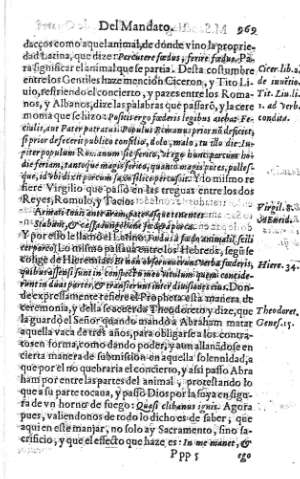 Del Mandato. 969
daços como aquel animal, de donde vino la proprie-
dad Latina, que dize: Percutere fœdus; ferire fœdus. Pa
ra significar el animal que se partia. Desta costumbre
entre los Gentiles haze mencion Ciceron, y Tito Li-
uio, refiriendo el concierto, y pazes entre los Roma-
nos, y Albanos, dize las palabras que passarõ, y la cere
monia que se hizo: Posito ergo fœderis legibus
cialis, aut Pater patratus. Populus Romanus prior nõ deficiet,
si prior defecerit publico consilio, dolo malo, tu illo die Iu-
piter populum Romanum sic ferito, vt ego hunc porcum ho
die feriam, tantoque magis ferito, quanto magis potes, polles-
que, Y lo mismo re
fiere Virgilio que passò en las treguas entre los dos
Reyes, Romulo, y Tacio:
Armati Iouis ante aram, paterasque tenentes
Stabant, & cæsa iungebant fœdera porca.
Y por esso le llamo el Latino:
Lo mismo passaua entre los Hebreos, segũ se
colige de Hieremias:
quibus assensi sunt in conspectu meo vitulum quem concide-
runt in duas partes, & transierunt inter diuisiones eius. Don-
de expressamente refiere el Propheta esta manera de
ceremonia, y della se acuerda Theodoreto y dize, que
la guardò el Señor quando mandò a Abraham matar
aquella vaca de tres años, para obligarse a los contra-
tos en forma, como dando poder, y aun allanãdose en
cierta manera de submission en aquella solennidad, a
que por el no quebraria el concierto, y assi passò Abra
ham por entre las partes del animal, protestando lo
que a su parte tocaua, y passò Dios por la suya en figu
ra de vn horno de fuego: Quasi clibanus ignis. Agora
pues, valiendonos de todo lo dicho es de saber, que
aqui en este manjar, no solo ay Sacramento, sino sa-
crificio, y que el effecto que haze es: In me manet, &
Ppp 5 ego
Cicer. lib. 2.
de inuẽtio.
Tit. Liu. li.
1. ad verb.
condita.
Virgil. 8.
Æneid.
Hiere. 34.
Theodoret.
Genes. 15.